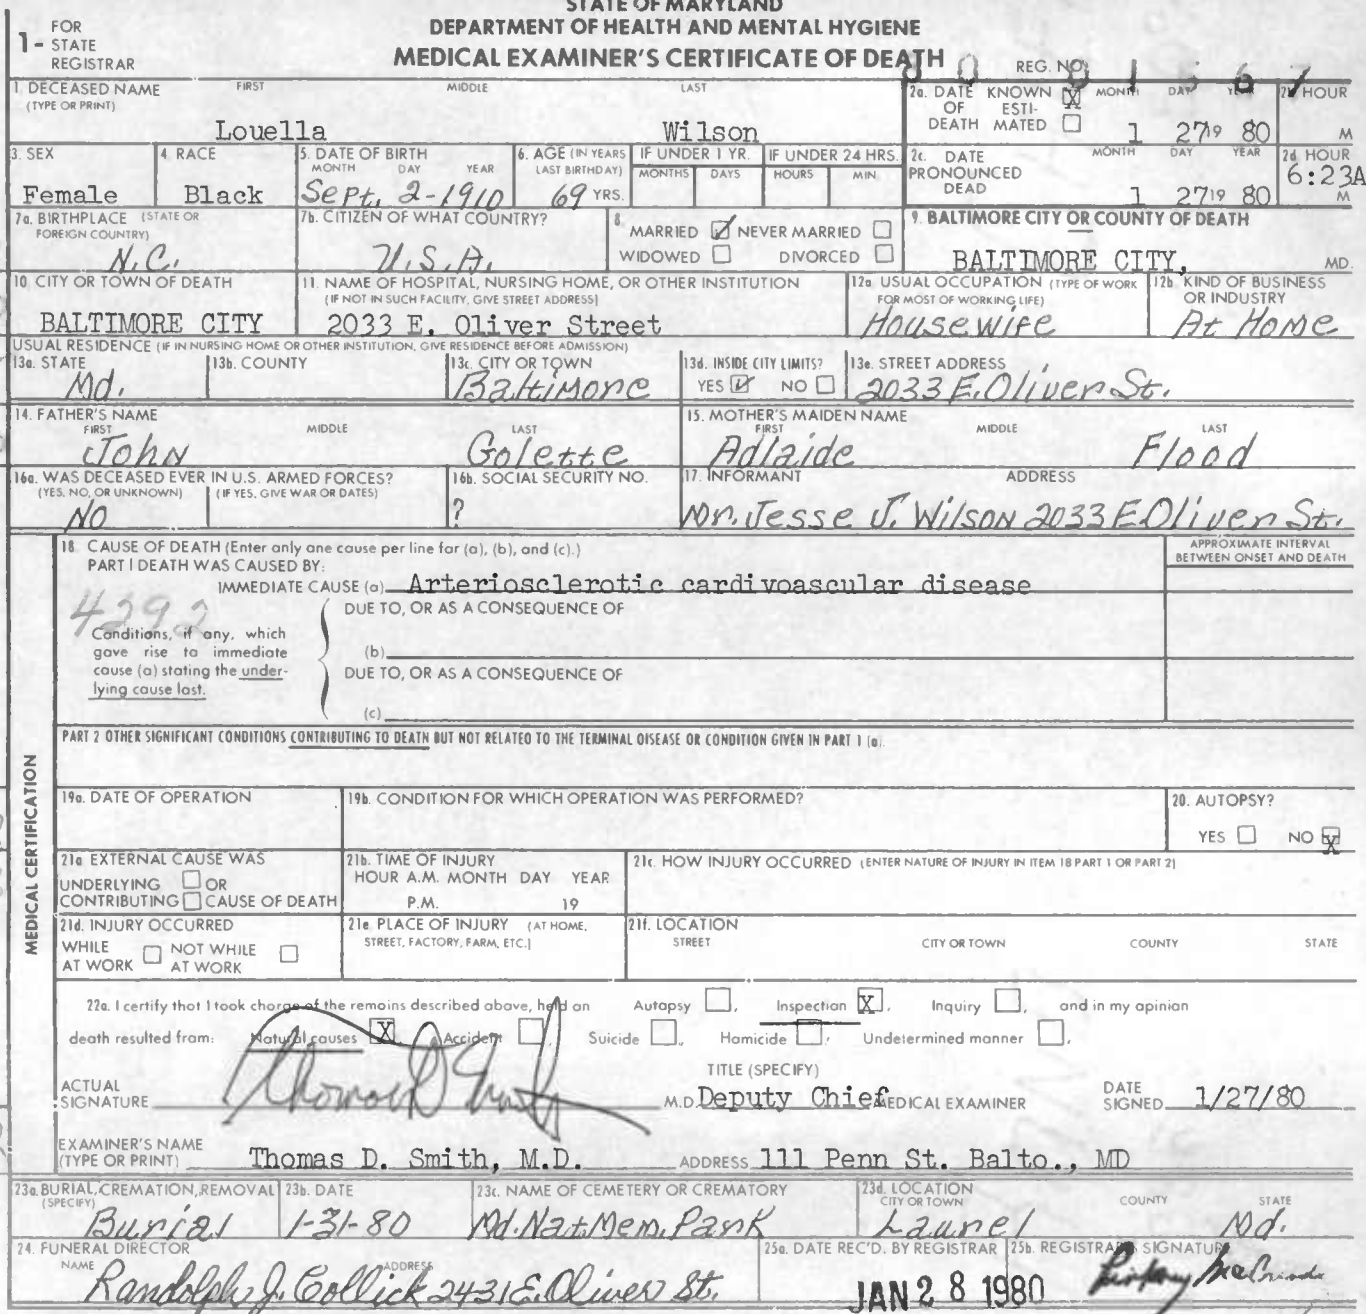 STATE OF MARYLAND
DEPARTMENT OF HEALTH AND MENTAL HYGIENE
MEDICAL EXAMINER'S CERTIFICATE OF DEATH
1- FOR STATE REGISTRAR
REG. NO.
1. DECEASED NAME (TYPE OR PRINT) FIRST MIDDLE LAST
Louella Wilson
2a. DATE OF DEATH KNOWN X ESTIMATED MONTH DAY YEAR
1 27 19 80
2b HOUR
M
3. SEX
Female
4. RACE
Black
5. DATE OF BIRTH MONTH DAY YEAR
Sept. 2-1910
6. AGE (IN YEARS LAST BIRTHDAY)
69 YRS.
IF UNDER 1 YR. MONTHS DAYS
IF UNDER 24 HRS. HOURS MIN
2c. DATE PRONOUNCED DEAD MONTH DAY YEAR
1 27 19 80
2d HOUR
6:23A M
7a. BIRTHPLACE (STATE OR FOREIGN COUNTRY)
N.C.
7b. CITIZEN OF WHAT COUNTRY?
U.S.A.
8. MARRIED ☑ NEVER MARRIED ☐
WIDOWED ☐ DIVORCED ☐
9. BALTIMORE CITY OR COUNTY OF DEATH
BALTIMORE CITY, MD.
10. CITY OR TOWN OF DEATH
BALTIMORE CITY
11. NAME OF HOSPITAL, NURSING HOME, OR OTHER INSTITUTION
(IF NOT IN SUCH FACILITY, GIVE STREET ADDRESS)
2033 E. Oliver Street
12a. USUAL OCCUPATION (TYPE OF WORK FOR MOST OF WORKING LIFE)
Housewife
12b. KIND OF BUSINESS OR INDUSTRY
At Home
USUAL RESIDENCE (IF IN NURSING HOME OR OTHER INSTITUTION, GIVE RESIDENCE BEFORE ADMISSION)
13a. STATE
Md.
13b. COUNTY
13c. CITY OR TOWN
Baltimore
13d. INSIDE CITY LIMITS?
YES ☑ NO ☐
13e. STREET ADDRESS
2033 E. Oliver St.
14. FATHER'S NAME
FIRST MIDDLE LAST
John Golette
15. MOTHER'S MAIDEN NAME
FIRST MIDDLE LAST
Adlaide Flood
16a. WAS DECEASED EVER IN U.S. ARMED FORCES?
(YES, NO, OR UNKNOWN) (IF YES, GIVE WAR OR DATES)
NO
16b. SOCIAL SECURITY NO.
?
17. INFORMANT ADDRESS
Mr. Jesse J. Wilson 2033 E Oliver St.
MEDICAL CERTIFICATION
18. CAUSE OF DEATH (Enter only one cause per line for (a), (b), and (c).)
PART I DEATH WAS CAUSED BY:
APPROXIMATE INTERVAL BETWEEN ONSET AND DEATH
IMMEDIATE CAUSE (a) Arteriosclerotic cardivoascular disease
4292
DUE TO, OR AS A CONSEQUENCE OF
Conditions, if any, which gave rise to immediate cause (a) stating the underlying cause last.
(b)
DUE TO, OR AS A CONSEQUENCE OF
(c)
PART 2 OTHER SIGNIFICANT CONDITIONS CONTRIBUTING TO DEATH BUT NOT RELATED TO THE TERMINAL DISEASE OR CONDITION GIVEN IN PART 1 (a).
19a. DATE OF OPERATION
19b. CONDITION FOR WHICH OPERATION WAS PERFORMED?
20. AUTOPSY?
YES ☐ NO X
21a. EXTERNAL CAUSE WAS
UNDERLYING ☐ OR
CONTRIBUTING ☐ CAUSE OF DEATH
21b. TIME OF INJURY
HOUR A.M. MONTH DAY YEAR
P.M. 19
21c. HOW INJURY OCCURRED (ENTER NATURE OF INJURY IN ITEM 18 PART 1 OR PART 2)
21d. INJURY OCCURRED
WHILE AT WORK ☐ NOT WHILE AT WORK ☐
21e. PLACE OF INJURY (AT HOME, STREET, FACTORY, FARM, ETC.)
21f. LOCATION
STREET CITY OR TOWN COUNTY STATE
22a. I certify that I took charge of the remains described above, held an Autopsy ☐, Inspection X, Inquiry ☐, and in my opinion
death resulted from: Natural causes X Accident ☐, Suicide ☐, Homicide ☐, Undetermined manner ☐.
TITLE (SPECIFY)
ACTUAL SIGNATURE Thomas D Smith M.D. Deputy Chief MEDICAL EXAMINER DATE SIGNED 1/27/80
EXAMINER'S NAME (TYPE OR PRINT) Thomas D. Smith, M.D. ADDRESS 111 Penn St. Balto., MD
23a. BURIAL, CREMATION, REMOVAL (SPECIFY)
Burial
23b. DATE
1-31-80
23c. NAME OF CEMETERY OR CREMATORY
Md. Nat. Mem. Park
23d. LOCATION
CITY OR TOWN COUNTY STATE
Laurel Md.
24. FUNERAL DIRECTOR
NAME ADDRESS
Randolph J. Collick 2431 E. Oliver St.
25a. DATE REC'D. BY REGISTRAR
JAN 28 1980
25b. REGISTRAR'S SIGNATURE